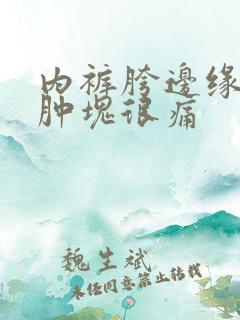 内裤胯邊缘
肿塊很痛
魏生斌
未经同意禁止转载